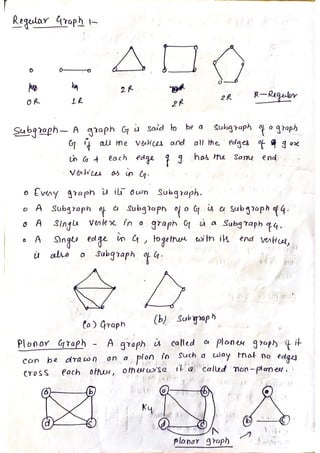 Regular Graph :-
0R 1R 2R 2R 2R R-Regular
Subgraph - A graph G is said to be a subgraph of a graph
G if all the vertices and all the edges of g are
in G & each edge of g has the same end
vertices as in G.
o Every graph is its own subgraph.
o A subgraph of a subgraph of a G is a subgraph of G.
o A single vertex in a graph G is a subgraph of G.
o A Single edge in G, together with its end vertices,
is also a subgraph of G.
(a) Graph (b) Subgraph
Planar Graph - A graph is called a planer graph if it
can be drawn on a plan in such a way that no edges
cross each other, otherwise it a called non-planer.
a b a b a
K4
d c d c b c
planar graph